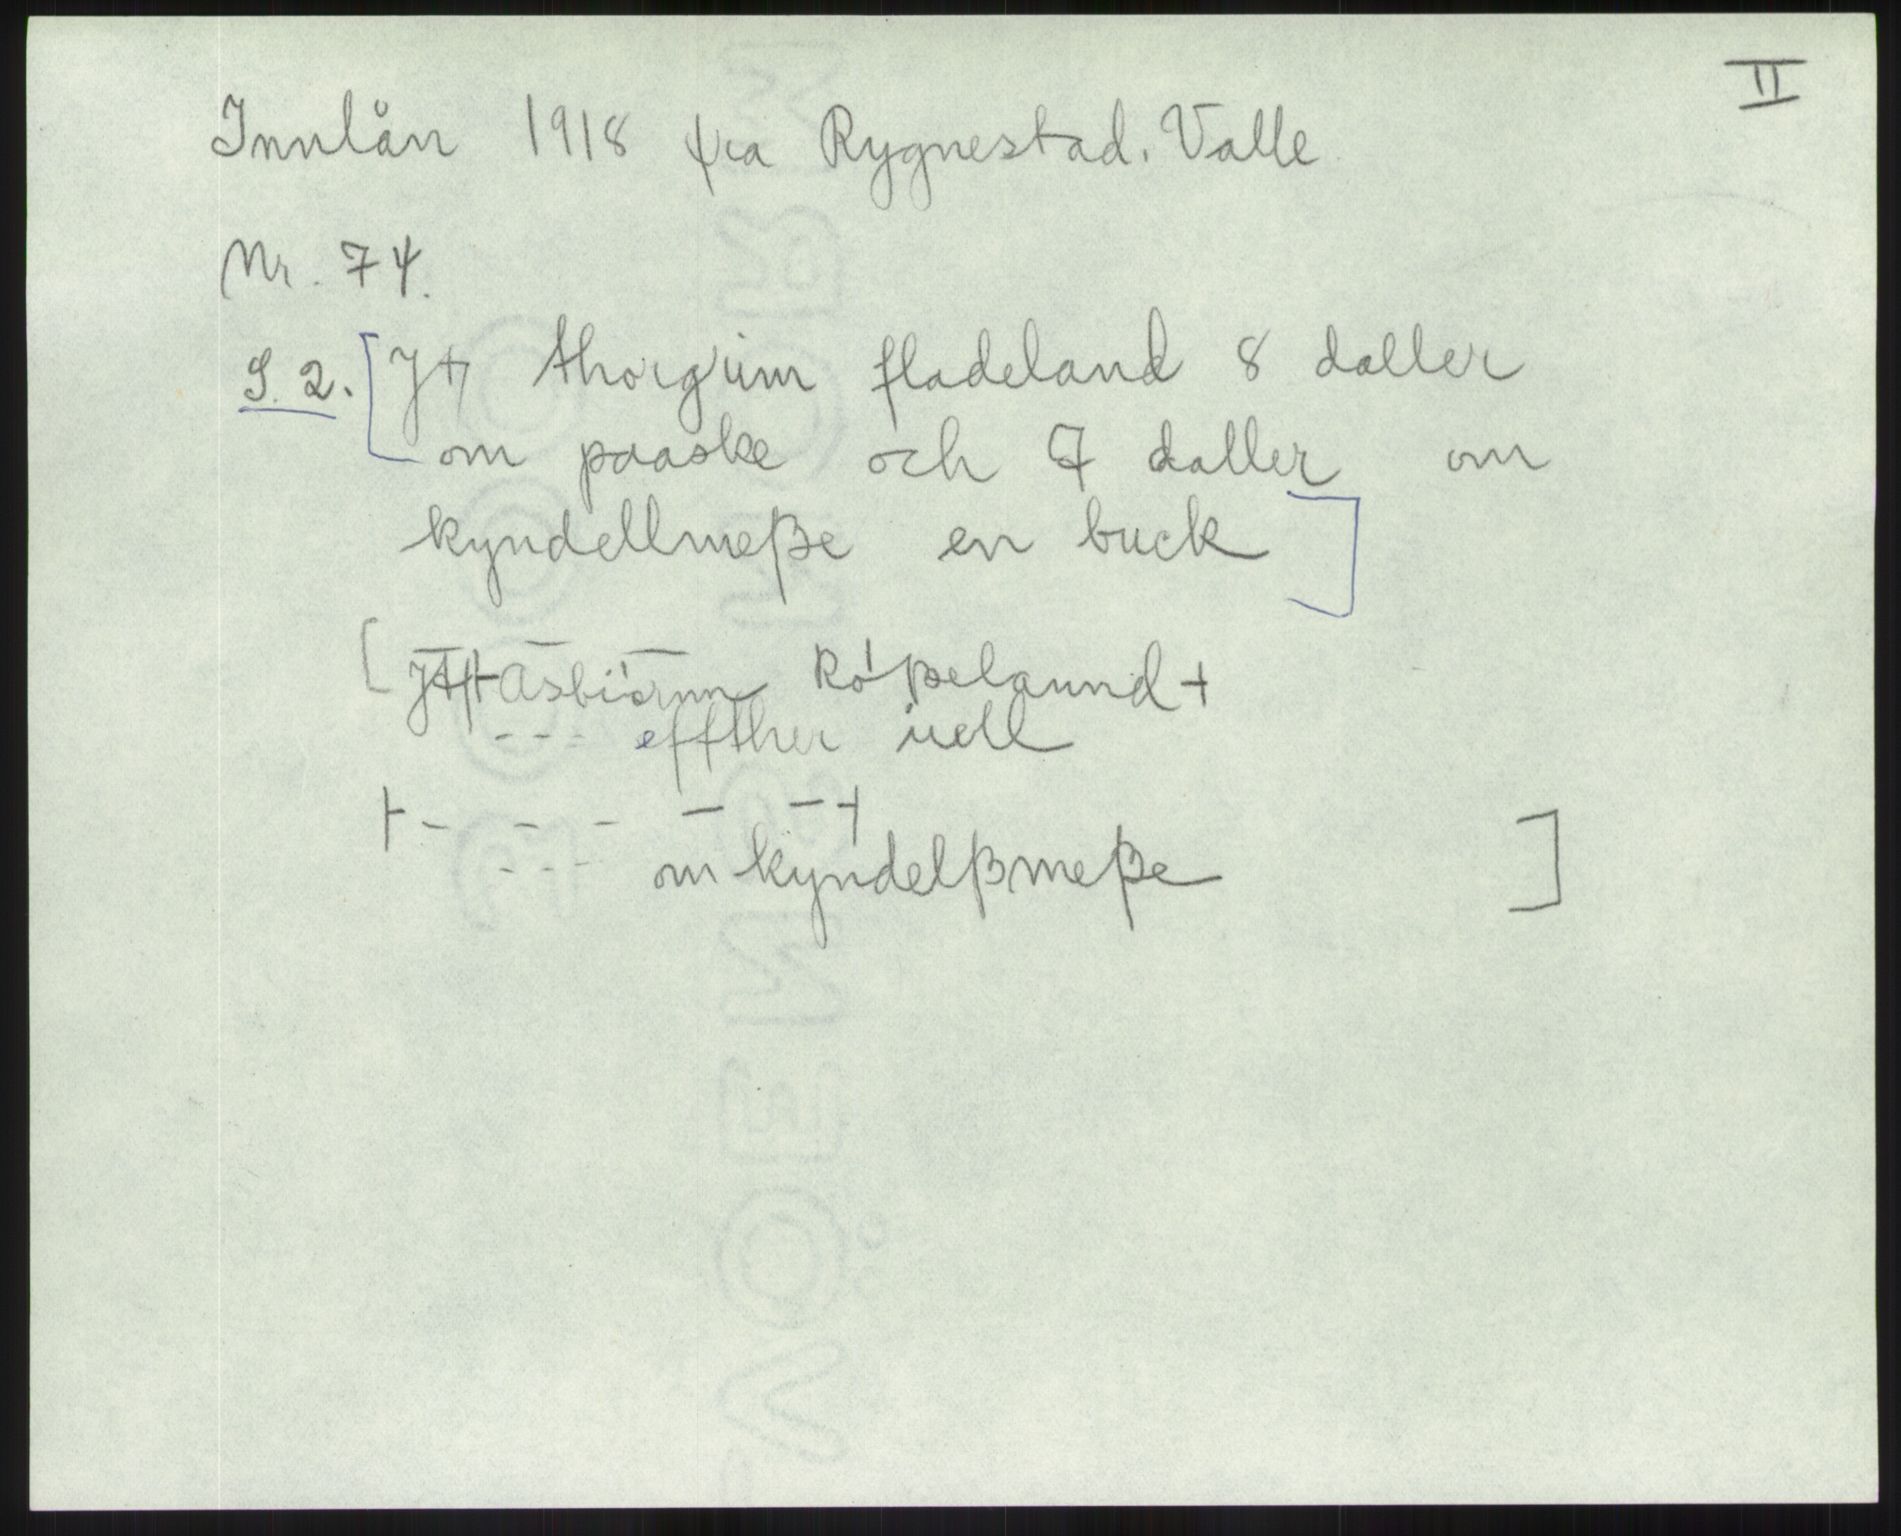 II
Innlån 1918 fra Rygnestad. Valle
Nr. 74.
S. 2. [Jtt thorgrim fladeland 8 daller
om paaske och 7 daller om
kyndellmeße en buck]
[Jtt Asbiórnn Róßelaund +
--- effther iuell
+- - - - -+
--- om kyndelßmeße ]